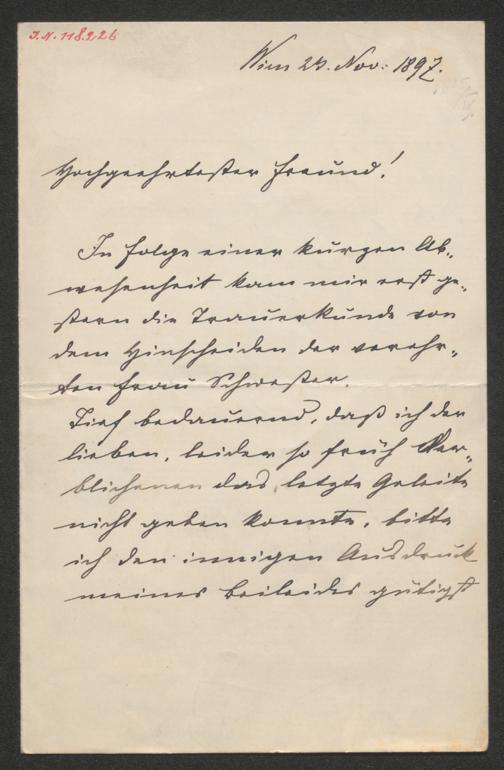 I.N. 118.226
Wien 23. Nov: 1897.
Hochgeehrtester Freund!
In Folge einer kurzen Ab„
wesenheit kam mir erst ge„
stern die Trauerkunde von
dem Hinscheiden der verehr„
ten Frau Schwester.
Tief bedauernd, daß ich der
lieben, leider so früh Ver„
blichenen das letzte Geleite
nicht geben konnte, bitte
ich den innigen Ausdruck
meines Beileides gütigst